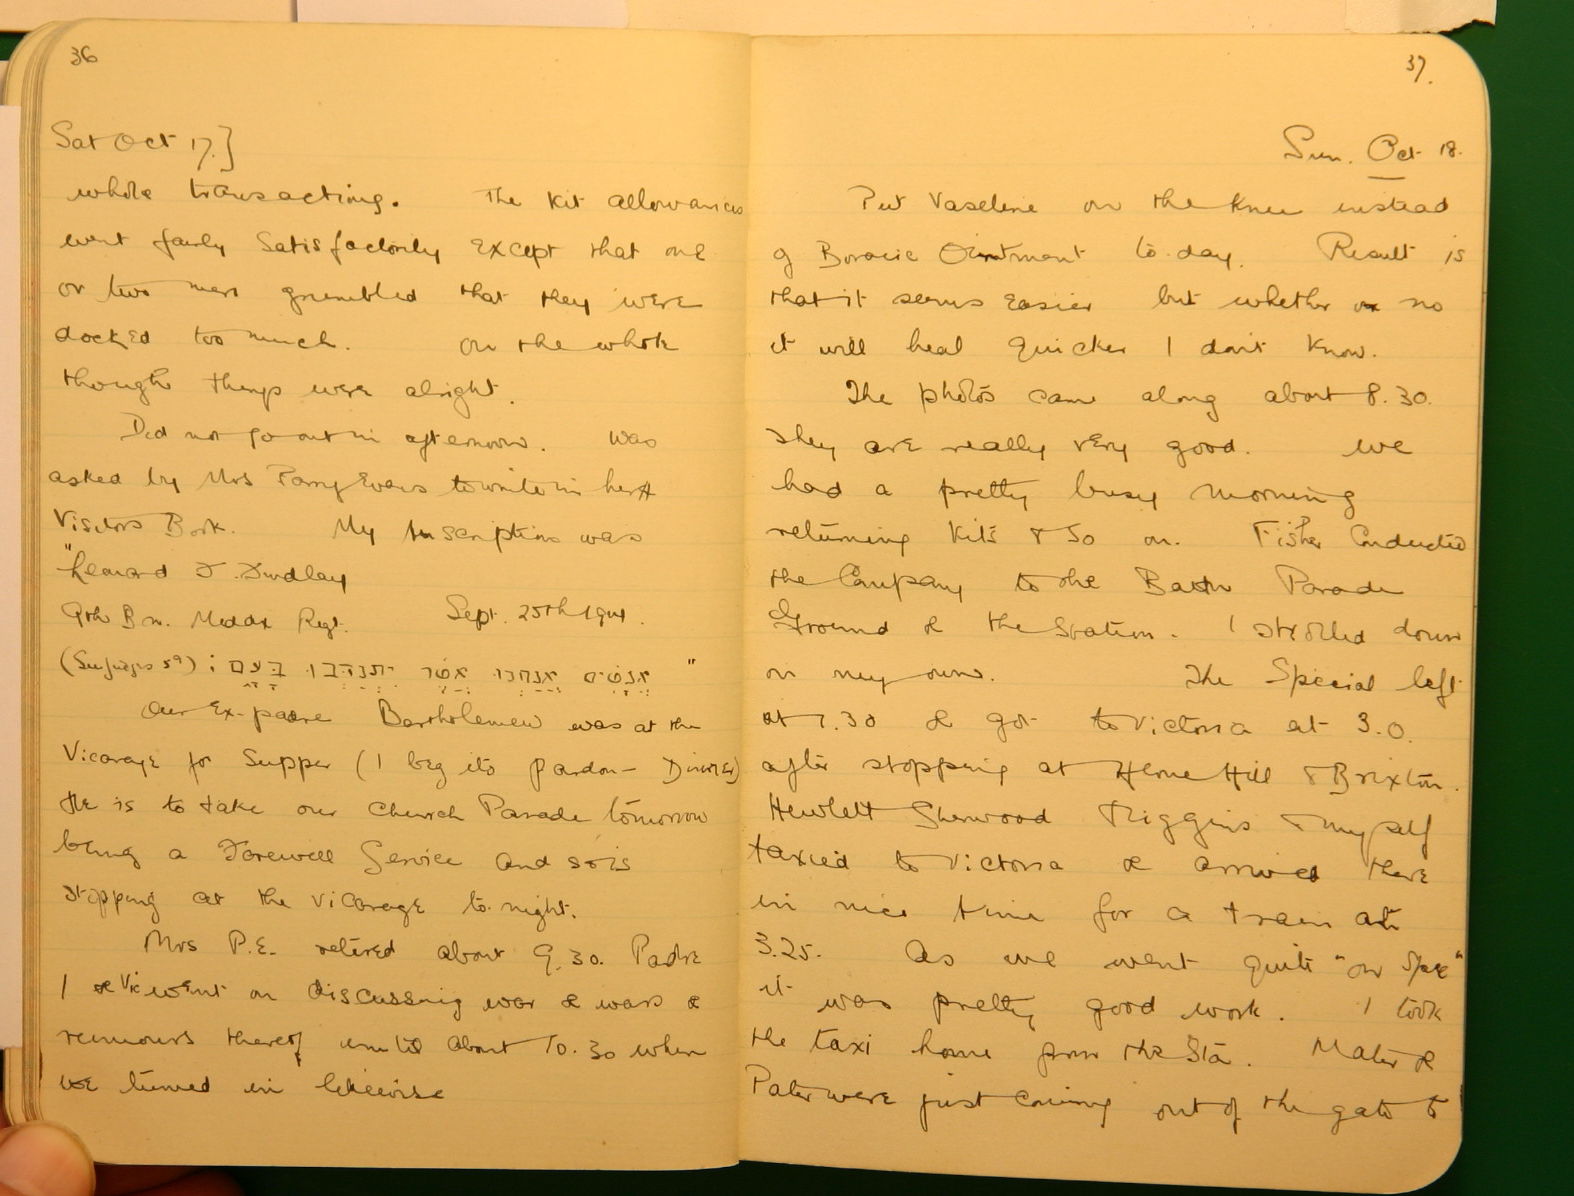 36
Sat Oct 17.]
whole transacting. The kit allowances
went fairly satisfactorily except that one
or two men grumbled that they were
docked too much. On the whole
though things were alright.
Did not go out in afternoon. Was
asked by Mrs Parry Evans to write in her
Visitors Book. My inscription was
"Leonard J. Dudley
9th Bn. Middx Regt. Sept. 25th 1914.
אנשים אנחנו אשר יתנדבו בעם : "
Our Ex-padre Bartholemew was at the
Vicarage for Supper (I beg its pardon – Dinner)
He is to take our Church Parade tomorrow
being a Farewell Service and so is
stopping at the Vicarage to-night.
Mrs P.E. retired about 9.30. Padre
I & Vic went on discussing war & wars &
rumours thereof until about 10.30 when
we turned in likewise
37.
Sun. Oct 18.
Put Vaseline on the knee instead
of Boracic Ointment to-day. Result is
that it seems easier but whether or no
it will heal quicker I don't know.
The photos came along about 8.30.
They are really very good. We
had a pretty busy morning
returning kits & so on. Fisher Conducted
the Company to the Battn Parade
Ground & the Station. I strolled down
on my own. The Special left
at 1.30 & got to Victoria at 3.0.
after stopping at Herne Hill & Brixton.
Hewlett Sherwood Higgins & myself
taxied to Victoria & arrived there
in nice time for a train at
3.25. As we went quite "on spec"
it was pretty good work. I took
the taxi home from the Sta. Mater &
Pater were just coming out of the gate to